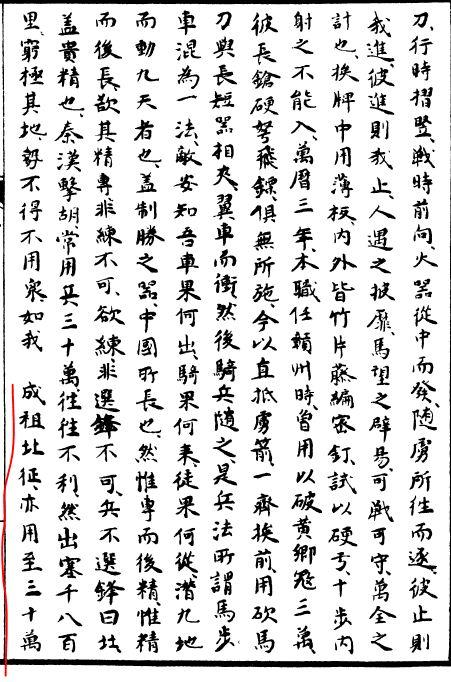 刀、行時摺竪、戰時前向、火器從中而發、隨虜所往而逐、彼止則
我進、彼進則我止、人遇之披靡、馬望之辟易、可戰可守、萬全之
計也、挨牌中用薄板、內外皆竹片藤編密釘、試以硬弓、十步內
射之不能入、萬曆三年、本職任贛州時、曾用以破黃鄉冦三萬、
彼長鎗硬弩飛鏢、俱無所施、今以直抵虜箭、一齊挨前、用砍馬
刀與長短器相夾、翼車而衝、然後騎兵隨之、是兵法所謂馬步
車混為一法、敵安知吾車果何出、騎果何來、徒果何從、潛九地
而動九天者也、盖制勝之器、中國所長也、然惟專而後精、惟精
而後長、欲其精專、非練不可、欲練、非選鋒不可、兵不選鋒曰北、
盖貴精也、秦漢擊胡、常用兵三十萬、往往不利、然出塞千八百
里、窮極其地、勢不得不用衆、如我 成祖北征、亦用至三十萬